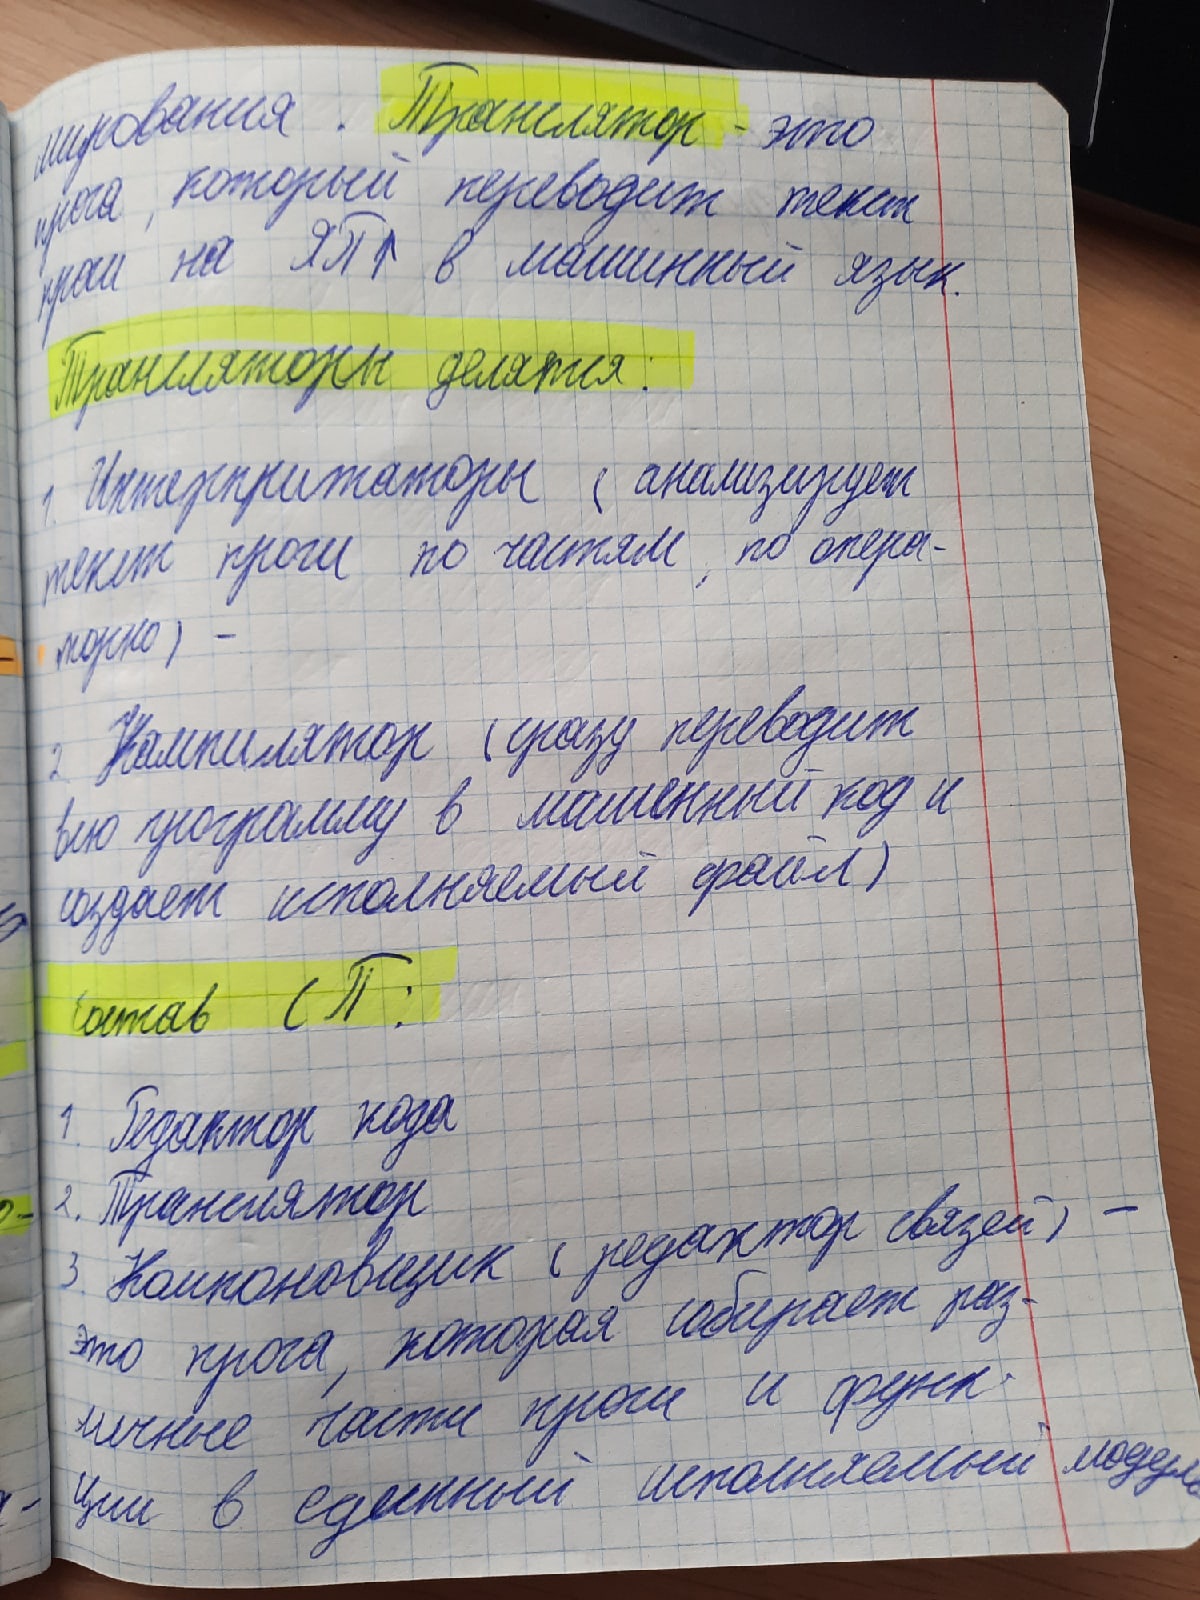 мирования. Транслятор - это
прога, который переводит текст
проги на ЯП↑ в машинный язык.
Трансляторы делятся:
1. Интерпритаторы (анализирует
текст проги по частям, по опера-
торно) -
2. Компилятор (сразу переводит
всю программу в машенный код и
создает исполняемый файл)
Состав СП:
1. Редактор кода
2. Транслятор
3. Компоновщик (редактор связей) -
это прога, которая собирает раз-
личные части проги и функ-
ции в единный исполняемый модуль